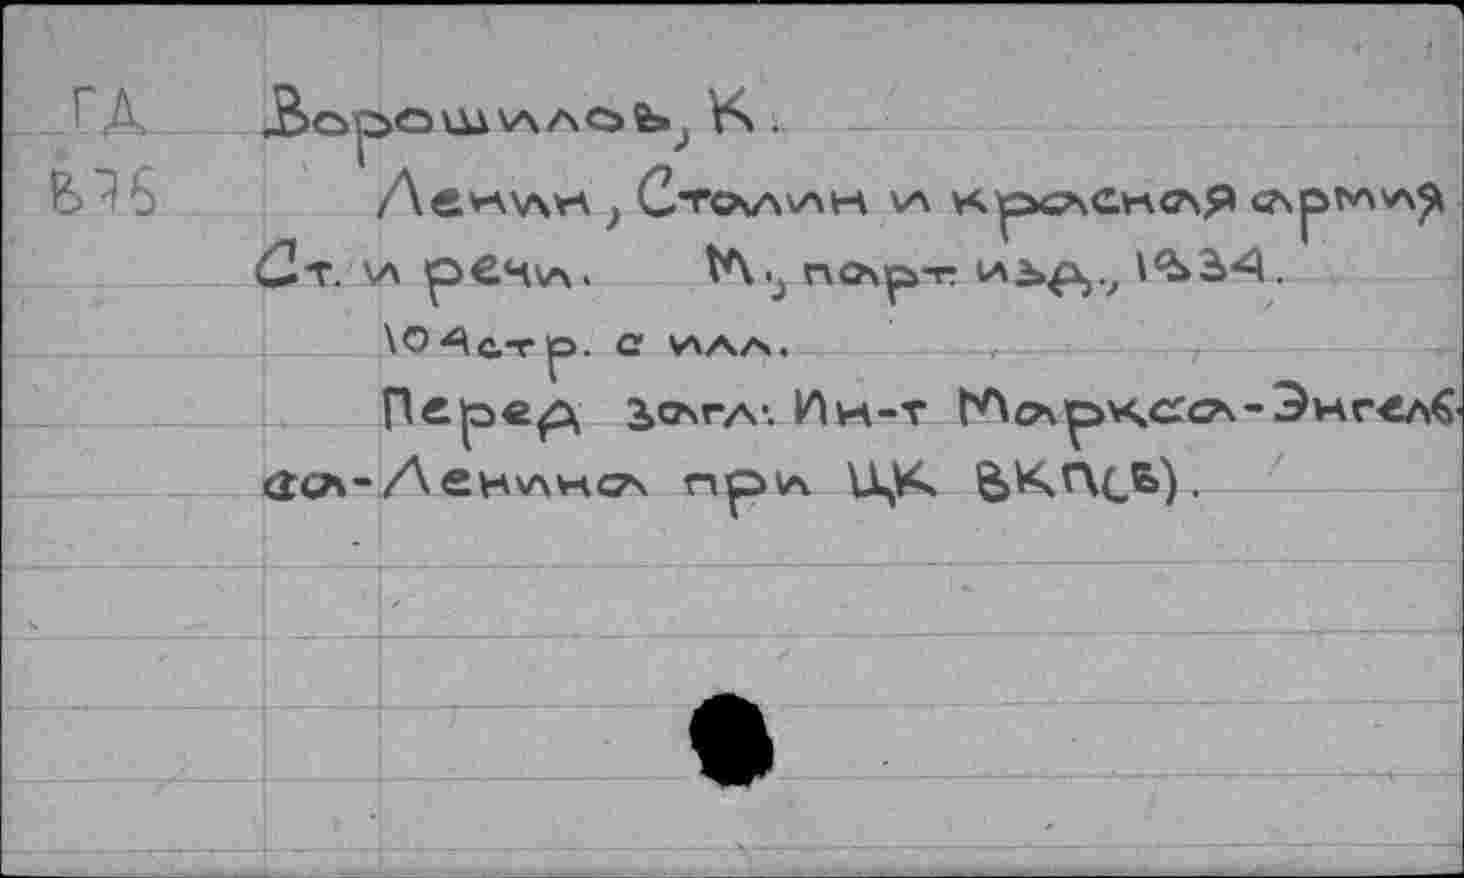 ГД Ворошилов, К.
В75 Ленин, Сталин и красная армия
Ст. и речи. М., парт. изд., 1934.
104стр. с илл.
Перед загл: Ин-т Маркса-Энгель-
са-Ленина при ЦК ВКП(б).